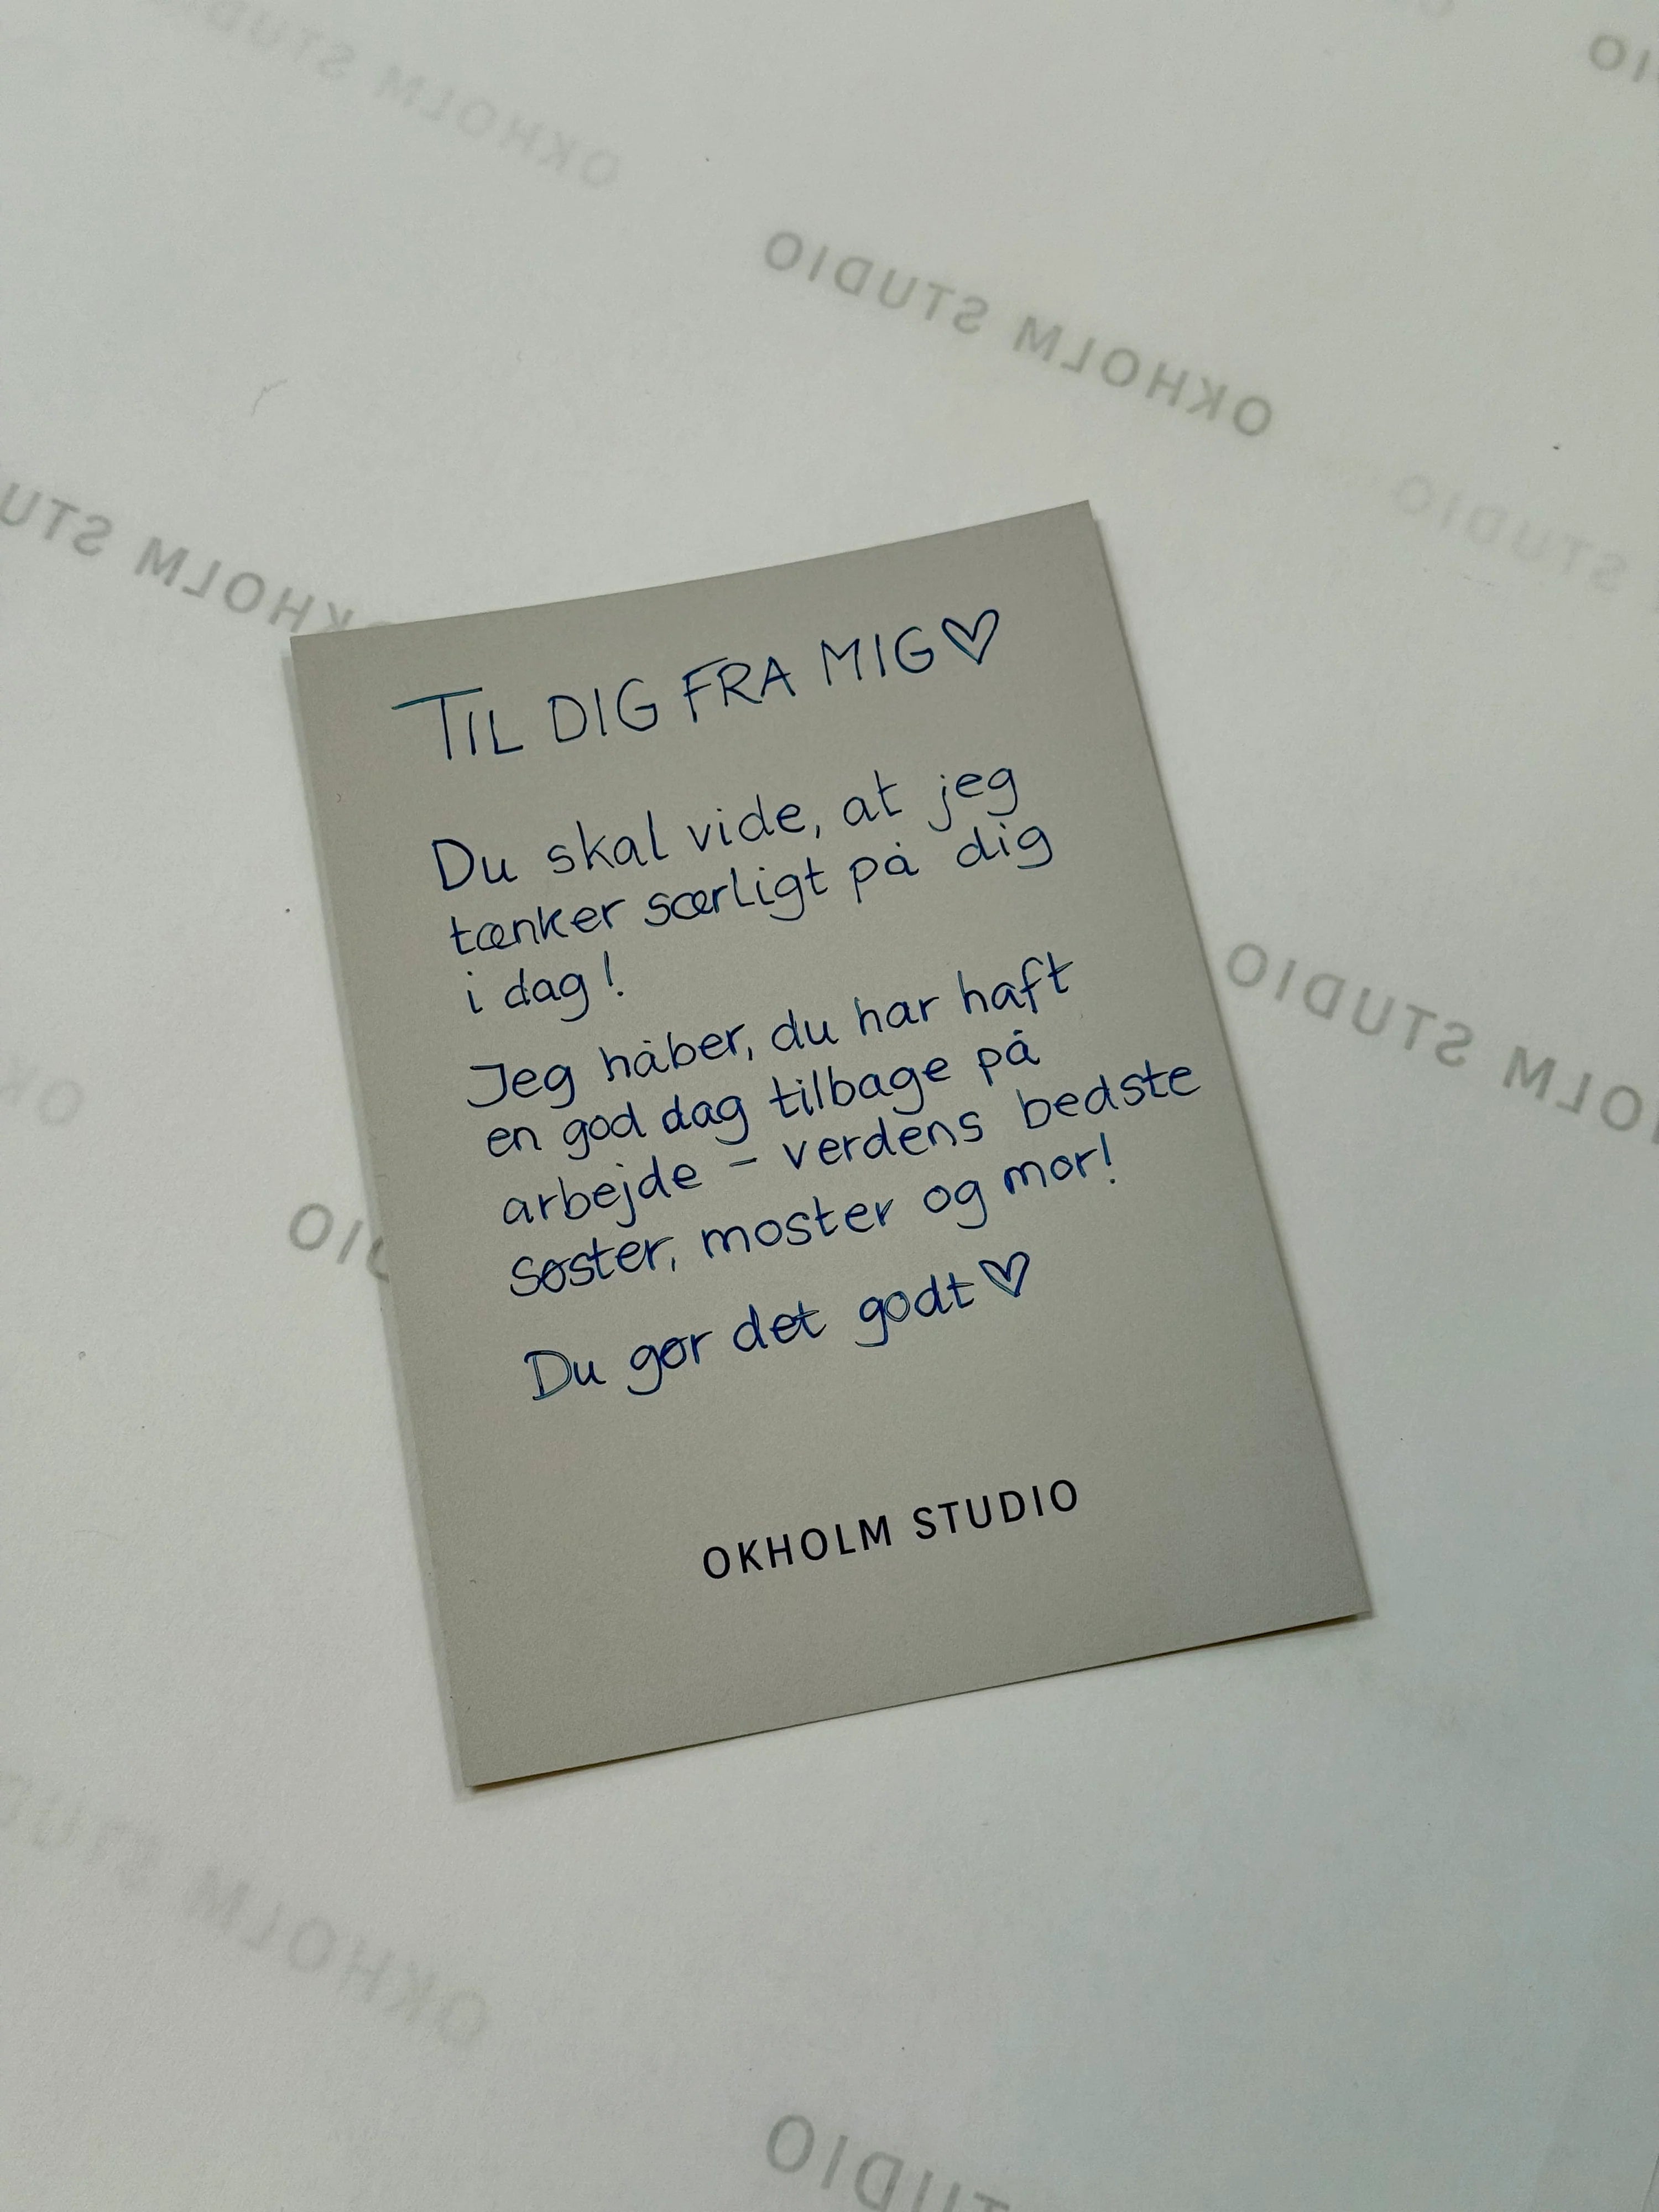 OKHOLM STUDIO
OIO
OKHOLM STUDIO
STUDIO
OKHOLM STU
TIL DIG FRA MIG♡
Du skal vide, at jeg
tænker særligt på dig
i dag!
Jeg håber, du har haft
en god dag tilbage på
arbejde – verdens bedste
søster, moster og mor!
Du gør det godt♡
OKHOLM STUDIO
HOLM STUDIO
OK
DIO
OKHOLM STUDIO
STUDIO